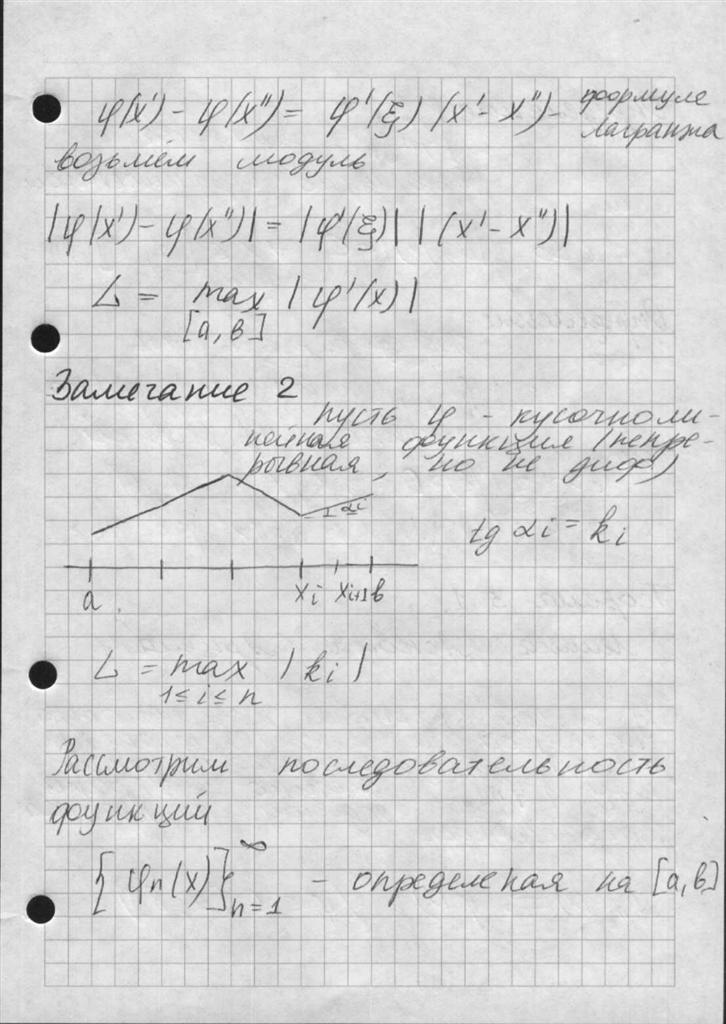 φ(x') - φ(x'') = φ'(ξ) (x' - x'') - формуле
лагранжа
возьмём модуль
|φ(x') - φ(x'')| = |φ'(ξ)| |(x' - x'')|
L = max |φ'(x)|
[a, в]
Замечание 2
пусть φ - кусочноли-
нейная функция (непре-
рывная, но не диф)
αi
tg αi = ki
a xi xi+1 в
L = max |ki|
1 ≤ i ≤ n
Рассмотрим последовательность
функций
{φn(x)}∞n=1 - определеная на [a, в]